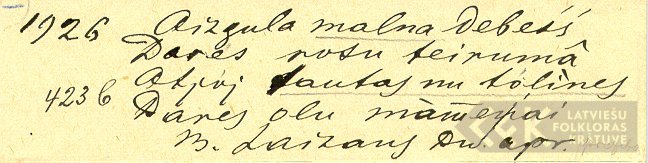 1926 Aizgula malna debešś
Dares rosu teirumâ
4236 Atjöj tautas nu tôlines
Dares olu mamenai
B. Laizans Dw. apr.
LATVIEŠU
FOLKLORAS
KRĀTUVE